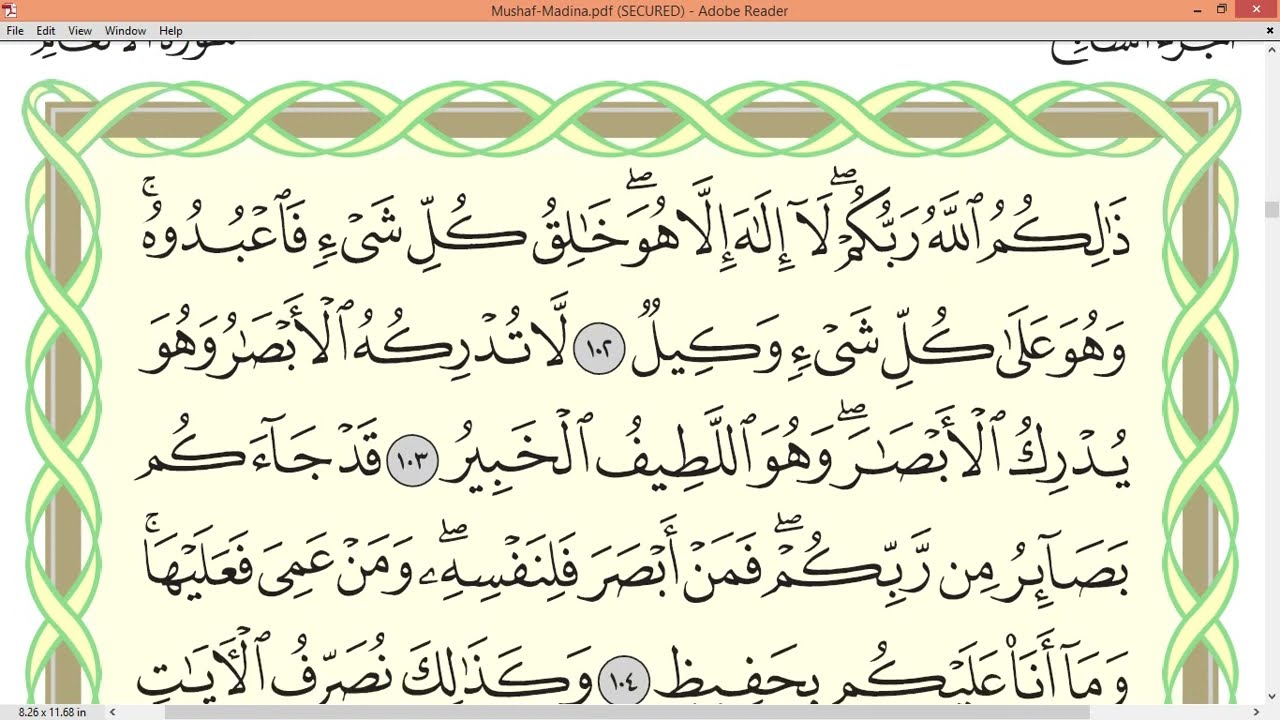 Mushaf-Madina.pdf (SECURED) - Adobe Reader
File Edit View Window Help
ذَٰلِكُمُ ٱللَّهُ رَبُّكُمۡۖ لَآ إِلَٰهَ إِلَّا هُوَۖ خَٰلِقُ كُلِّ شَيۡءٖ فَٱعۡبُدُوهُۚ
وَهُوَ عَلَىٰ كُلِّ شَيۡءٖ وَكِيلٞ ١٠٢ لَّا تُدۡرِكُهُ ٱلۡأَبۡصَٰرُ وَهُوَ
يُدۡرِكُ ٱلۡأَبۡصَٰرَۖ وَهُوَ ٱللَّطِيفُ ٱلۡخَبِيرُ ١٠٣ قَدۡ جَآءَكُم
بَصَآئِرُ مِن رَّبِّكُمۡۖ فَمَنۡ أَبۡصَرَ فَلِنَفۡسِهِۦۖ وَمَنۡ عَمِيَ فَعَلَيۡهَاۚ
وَمَآ أَنَا۠ عَلَيۡكُم بِحَفِيظٖ ١٠٤ وَكَذَٰلِكَ نُصَرِّفُ ٱلۡأٓيَٰتِ
8.26 x 11.68 in